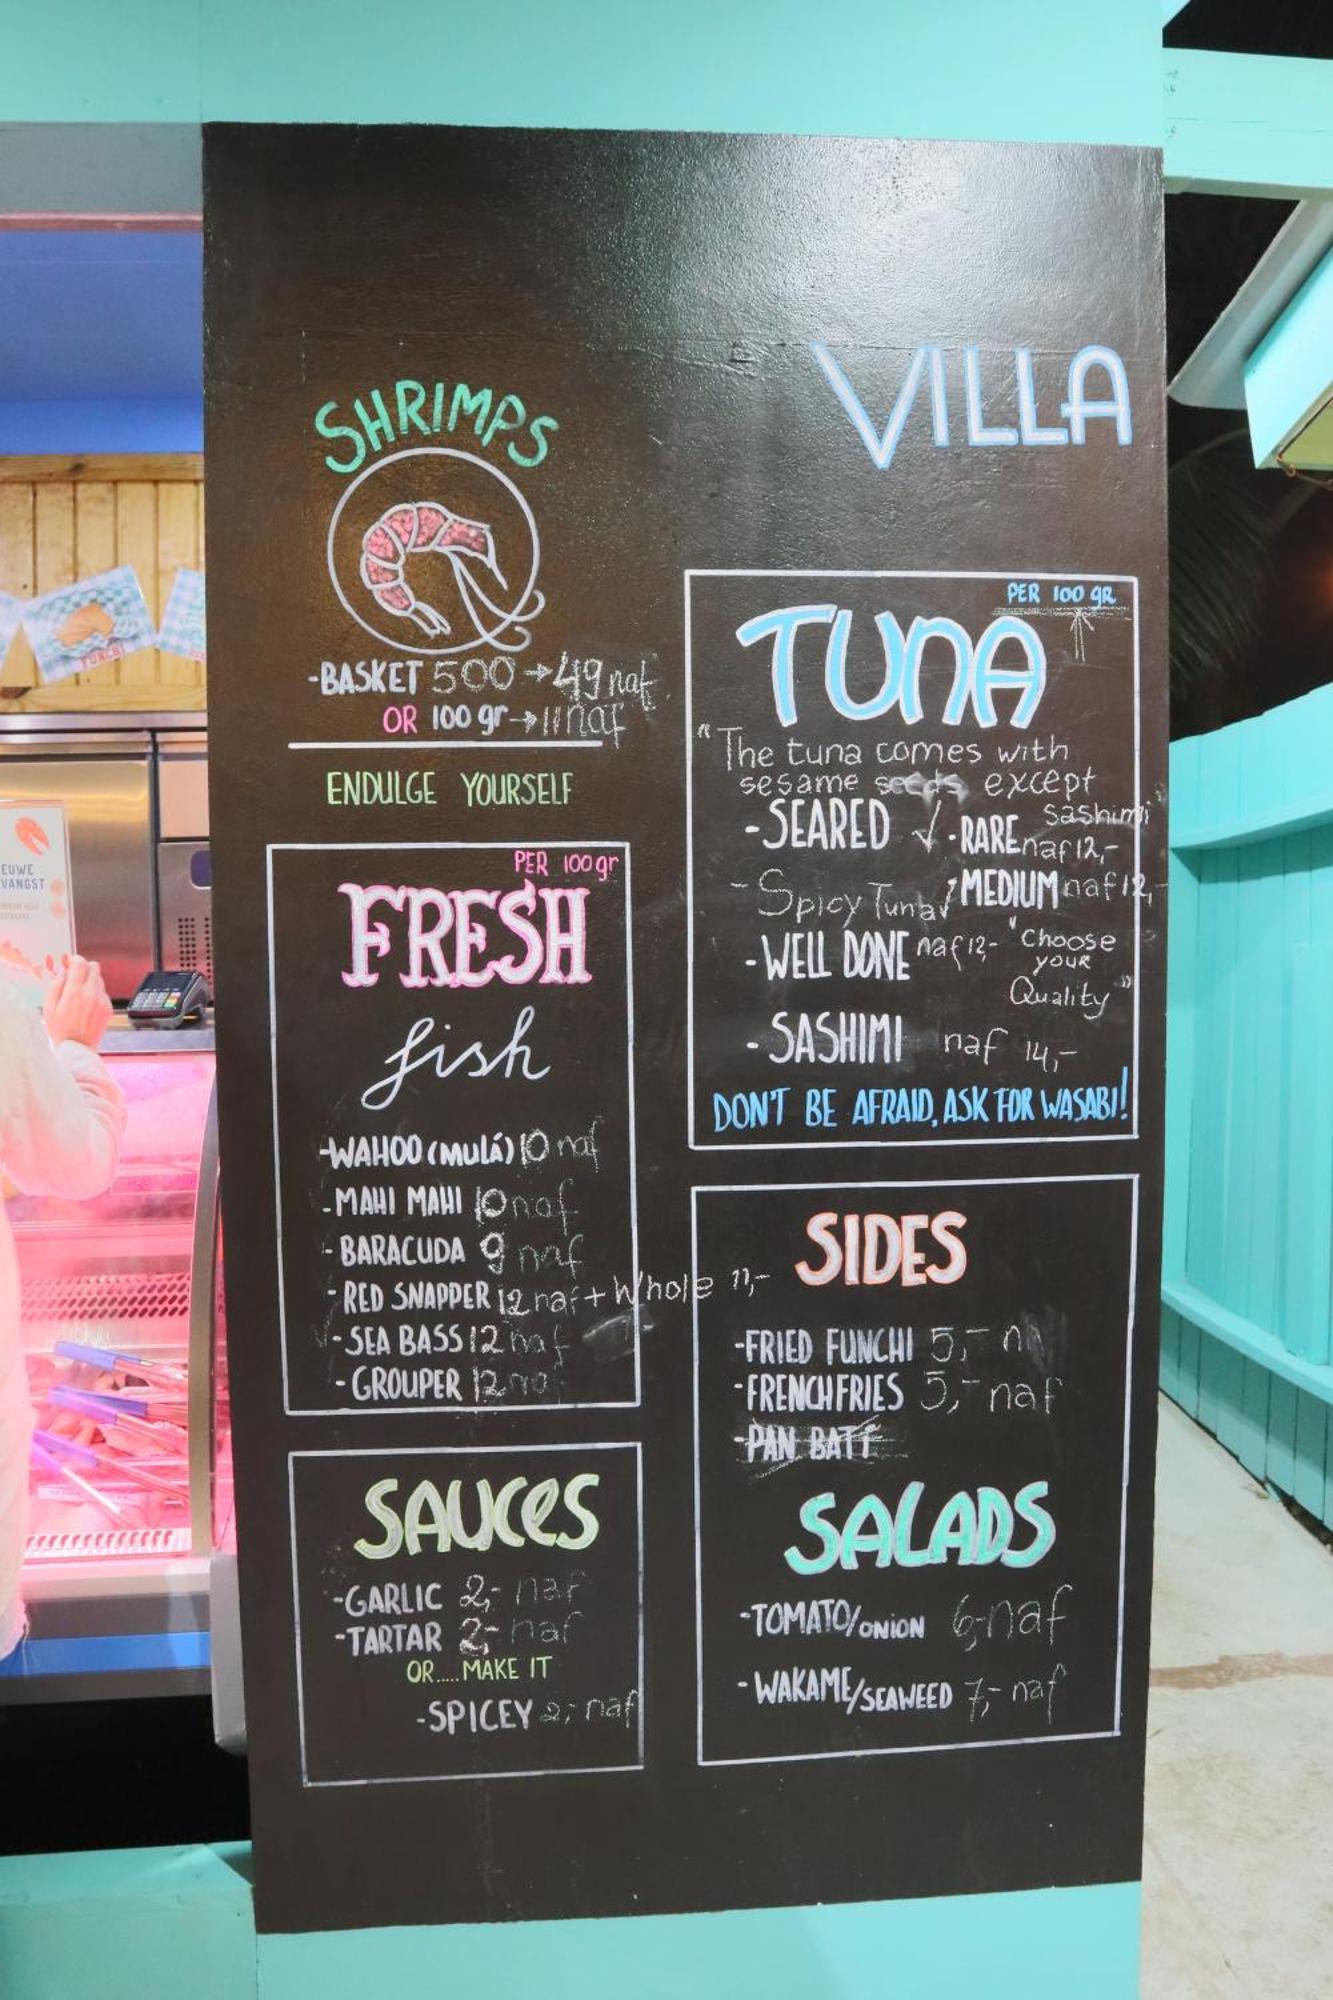 SHRIMPS
-BASKET 500 → 49 naf
OR 100 gr → 11 naf
ENDULGE YOURSELF
PER 100 gr
FRESH
fish
-WAHOO (MULÁ) 10 naf
-MAHI MAHI 10 naf
-BARACUDA 9 naf
-RED SNAPPER 12 naf + Whole 11,-
-SEA BASS 12 naf
-GROUPER 12 na
SAUCES
-GARLIC 2,- naf
-TARTAR 2,- naf
OR.....MAKE IT
-SPICEY 2,- naf
VILLA
PER 100 gR
TUNA
"The tuna comes with
sesame seeds except
sashimi"
-SEARED
-RARE naf 12,-
-Spicy Tuna
MEDIUM naf 12,-
-WELL DONE naf 12,-
"Choose
your
Quality"
-SASHIMI naf 14,-
DON'T BE AFRAID, ASK FOR WASABI!
SIDES
-FRIED FUNCHI 5,- n
-FRENCHFRIES 5,- naf
-PAN BATI
SALADS
-TOMATO/ONION 6,- naf
-WAKAME/SEAWEED 7,- naf
FUNCHI
EUWE
VANGST